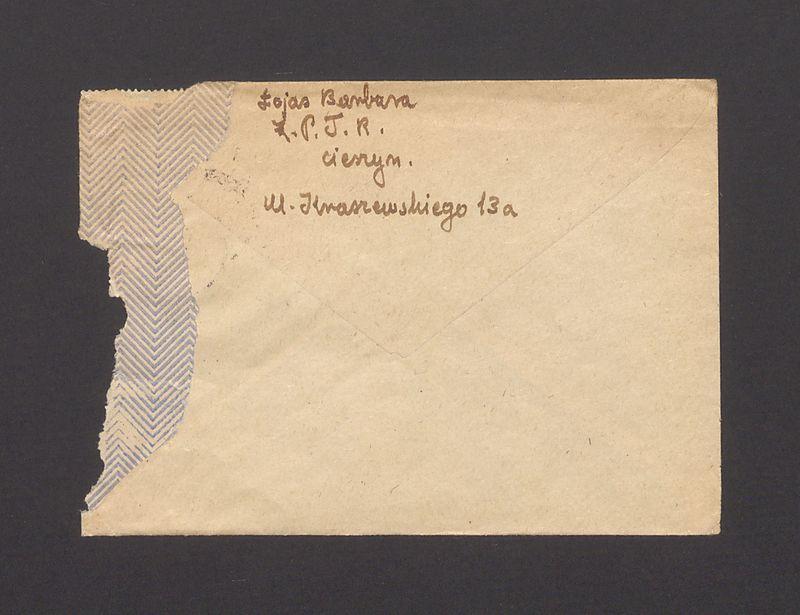 Łojas Barbara
Z.P.T.R.
Cieszyn.
Ul. Kraszewskiego 13a